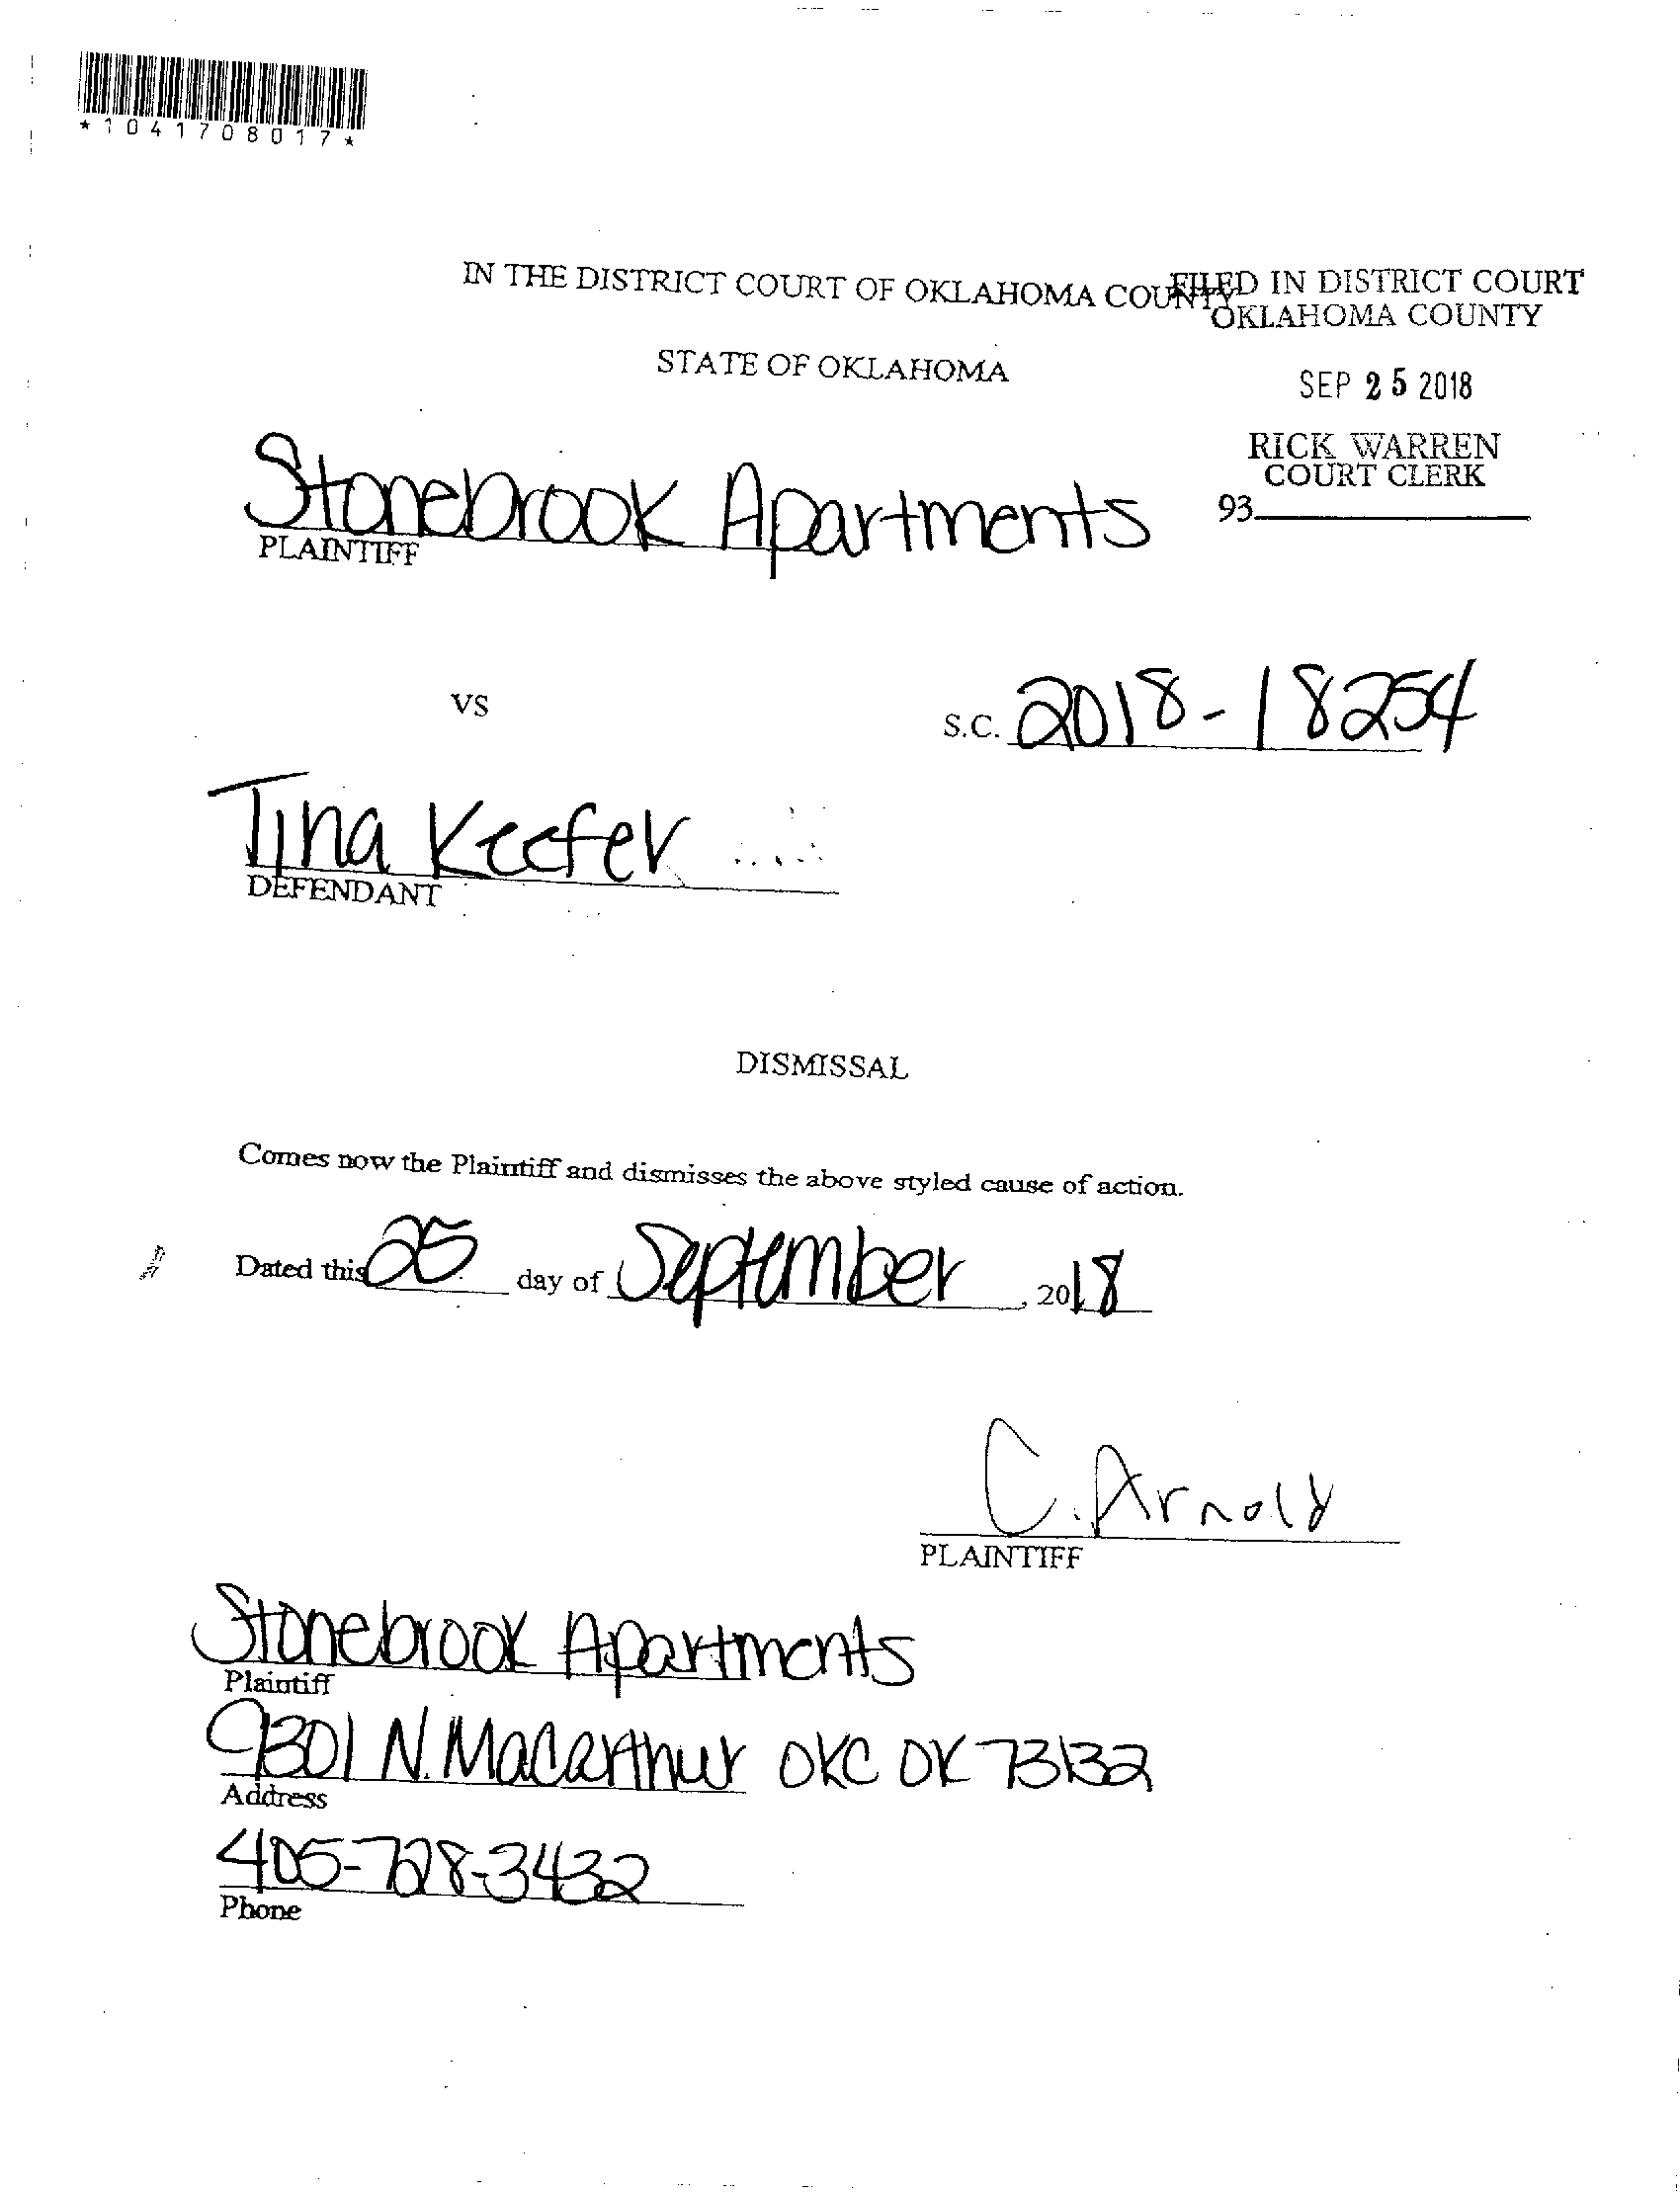 *1041708017*
IN THE DISTRICT COURT OF OKLAHOMA COUNTY
FILED IN DISTRICT COURT
OKLAHOMA COUNTY
STATE OF OKLAHOMA
SEP 25 2018
RICK WARREN
COURT CLERK
93
Stonebrook Apartments
PLAINTIFF
VS
S.C. 2018-18254
Tina Keefer
DEFENDANT
DISMISSAL
Comes now the Plaintiff and dismisses the above styled cause of action.
Dated this 25 day of September, 2018
C. Arnold
PLAINTIFF
Stonebrook Apartments
Plaintiff
9301 N. Macarthur OKC OK 73132
Address
405-728-3432
Phone